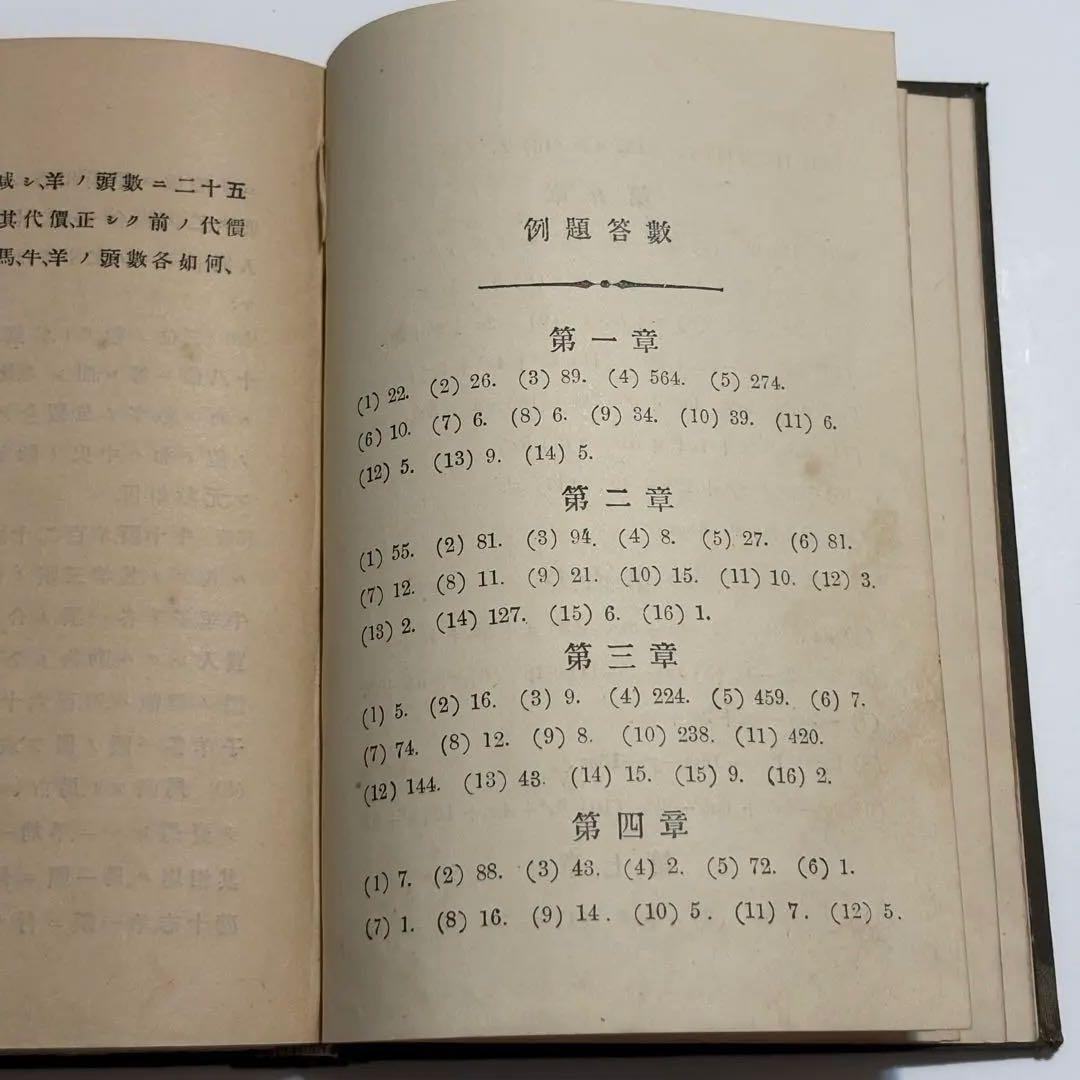 減シ、羊ノ頭數ニ二十五
其代價、正シク前ノ代價
馬、牛、羊ノ頭數各如何、
例題答數
第一章
(1) 22. (2) 26. (3) 89. (4) 564. (5) 274.
(6) 10. (7) 6. (8) 6. (9) 34. (10) 39. (11) 6.
(12) 5. (13) 9. (14) 5.
第二章
(1) 55. (2) 81. (3) 94. (4) 8. (5) 27. (6) 81.
(7) 12. (8) 11. (9) 21. (10) 15. (11) 10. (12) 3.
(13) 2. (14) 127. (15) 6. (16) 1.
第三章
(1) 5. (2) 16. (3) 9. (4) 224. (5) 459. (6) 7.
(7) 74. (8) 12. (9) 8. (10) 238. (11) 420.
(12) 144. (13) 43. (14) 15. (15) 9. (16) 2.
第四章
(1) 7. (2) 88. (3) 43. (4) 2. (5) 72. (6) 1.
(7) 1. (8) 16. (9) 14. (10) 5. (11) 7. (12) 5.